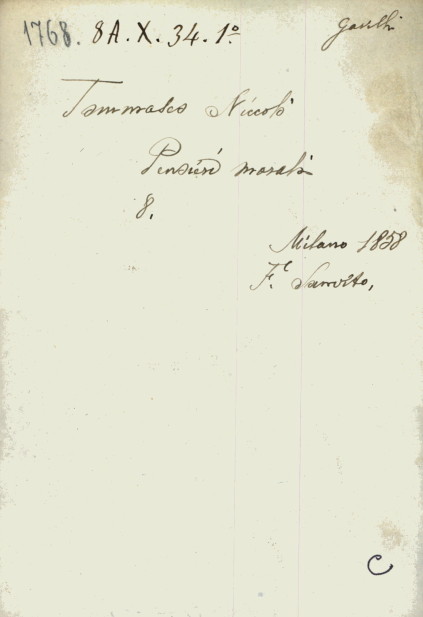 1768. 8A.X.34.1º
Tommaseo Niccolò
Pensieri morali
8.
Milano 1858
F. Sanvito,
C